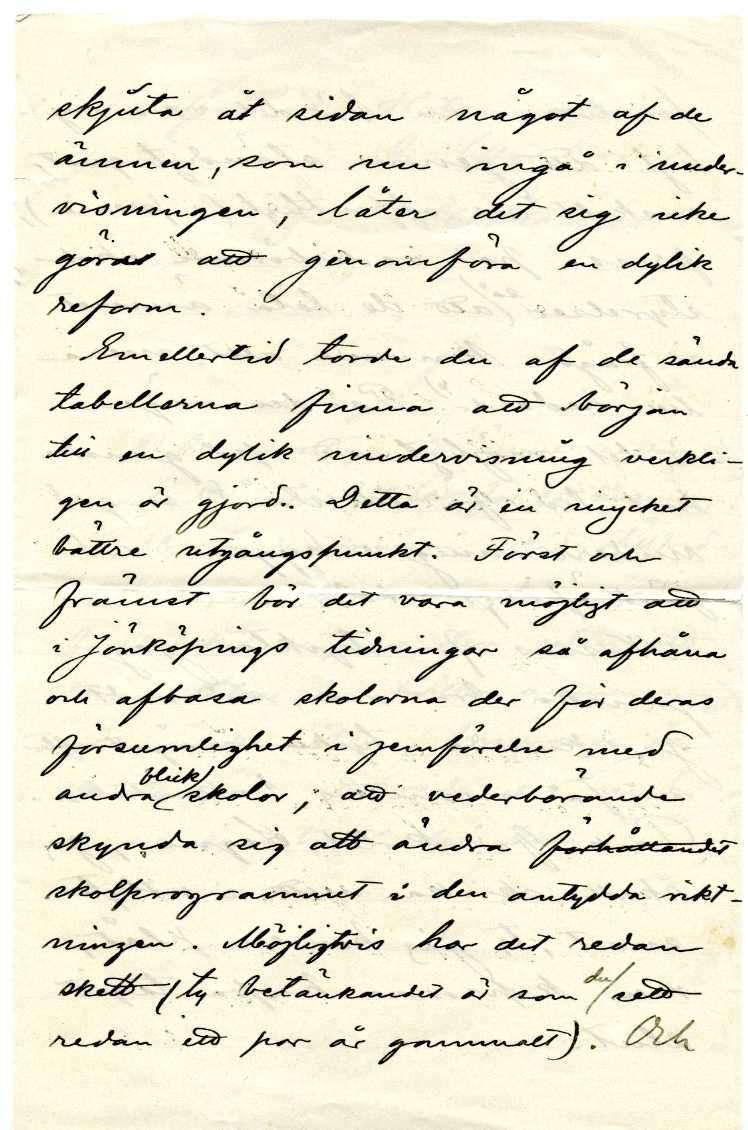 skjuta åt sidan något af de
ämnen, som nu ingå i under-
visningen, låter det sig icke
göras att genomföra en dylik
reform.
Emellertid torde du af de sända
tabellerna finna att början
till en dylik undervisning verkli-
gen är gjord. Detta är en mycket
bättre utgångspunkt. Först och
främst bör det vara möjligt att
i Jönköpings tidningar så afhåna
och afbasa skolorna der för deras
försumlighet i jemförelse med
andra blick/skolor, att vederbörande
skynda sig att ändra förhållandet
skolprogrammet i den antydda rikt-
ningen. Möjligtvis har det redan
skett (ty betänkandet är som du/sett
redan ett par år gammalt). Och